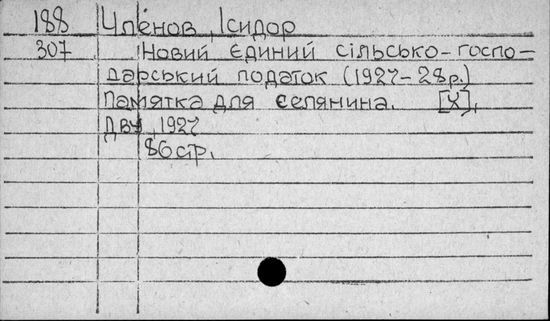 188 Членов, Ісидор
307 Новий єдиний сільсько-госпо-
дарський податок (1927-28р.)
Памятка для селянина. [Х],
ДВУ, 1927
86 стр.